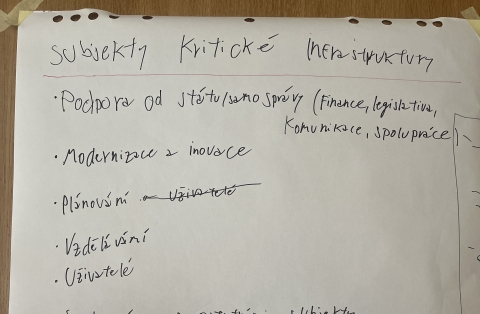 Subjekty kritické infrastruktury
• Podpora od státu/samosprávy (Finance, legislativa,
komunikace, spolupráce)
• Modernizace a inovace
• Plánování Uživatelé
• Vzdělávání
• Uživatelé